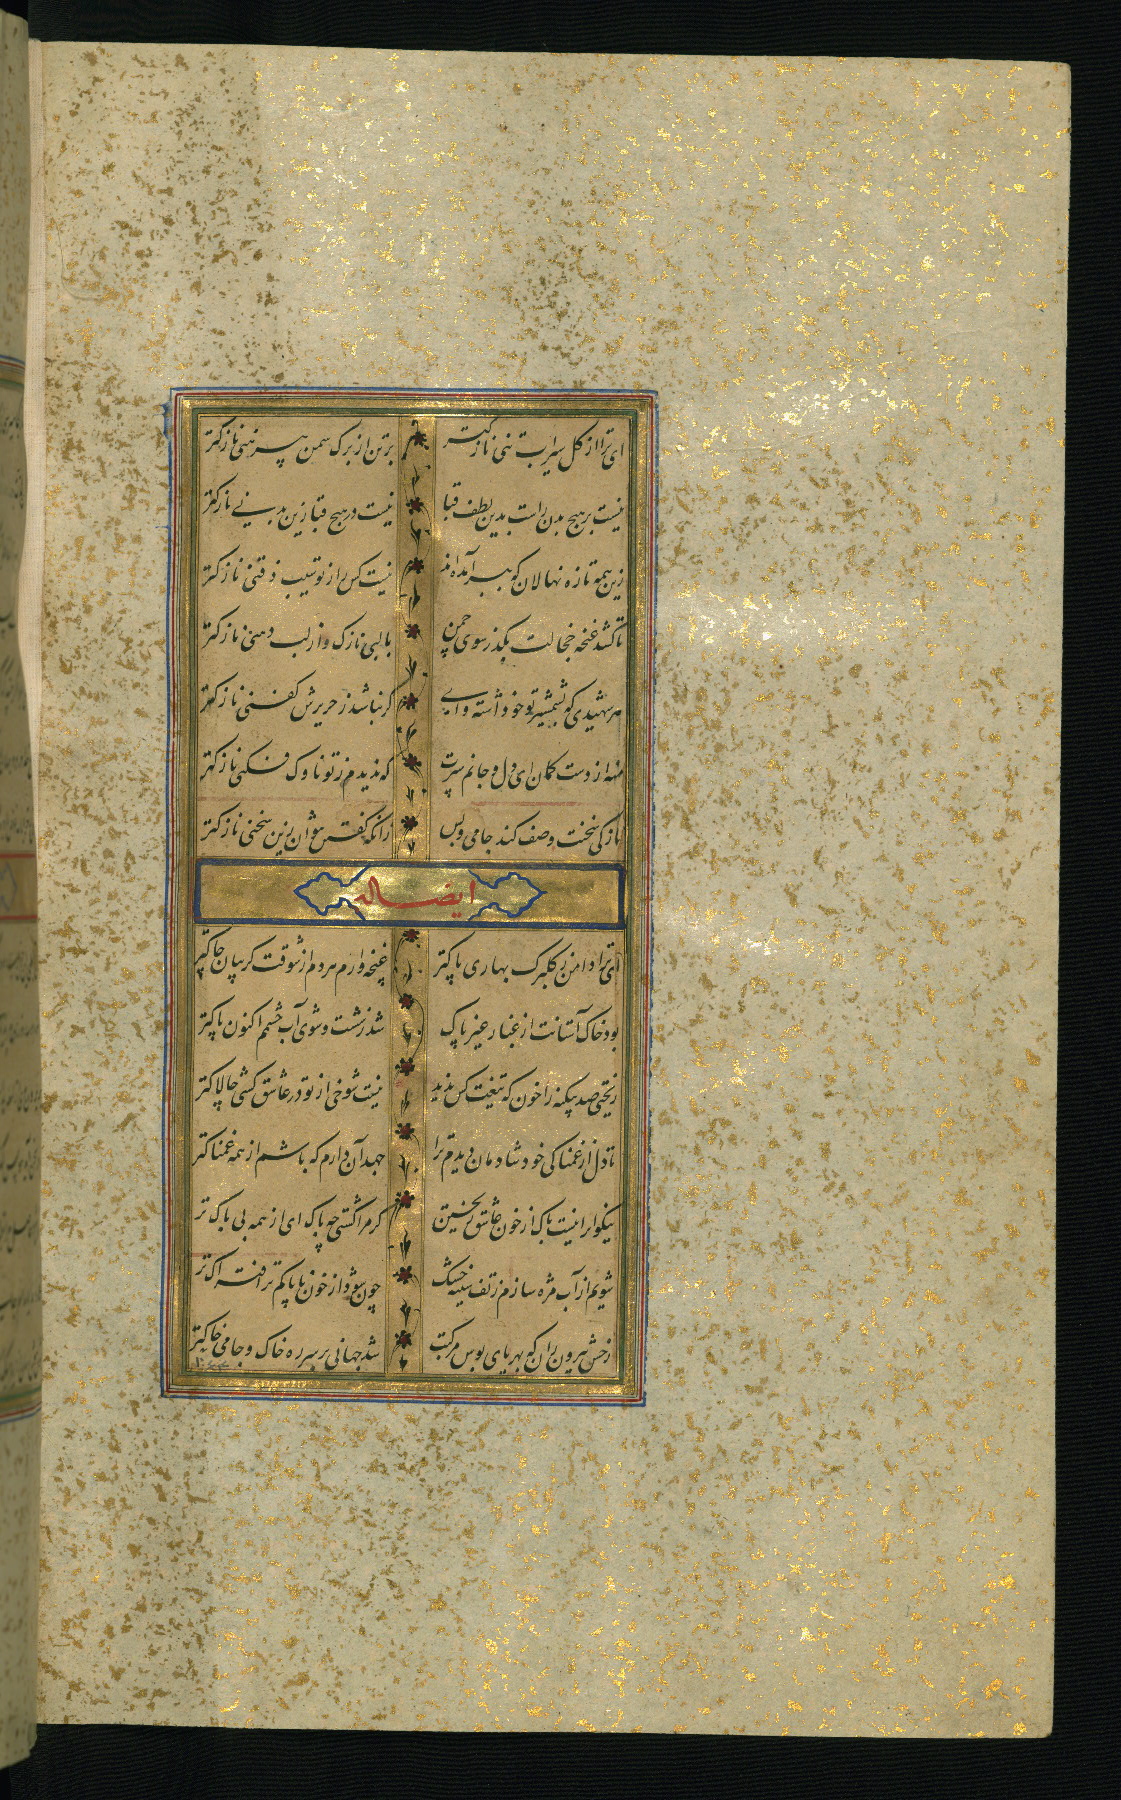 ای ترا از گل سیراب تنی نازکتر
برتن از برگ سمن پیرهنی نازکتر
نیست بر هیچ بدن راست بدین لطف قبا
نیست در هیچ قبا زین بدنی نازکتر
زین همه تازه نهالان که ببر آمده‌اند
نیست کس را ز تو سیب ذقنی نازکتر
تا کشد غنچه خجالت بگذر سوی چمن
با لبی نازک و از لب دهنی نازکتر
هر شهیدی که بشمشیر تو خو داشته وای
گر نباشد ز حریرش کفنی نازکتر
منه از دست کمان ای دل و جانم سپرت
که ندیدم ز تو ناوک فکنی نازکتر
نازکی سخنت وصف کند جامی و بس
زانکه گفتن نتوان زین سخنی نازکتر
ایضا له
ای ترا دامن ز گلبرگ بهاری پاکتر
غنچه وارم هر دم از شوقت گریبان چاکتر
بود خاک آستانت از غبار غیر پاک
شد ز شست و شوی آب چشمم اکنون پاکتر
ریختی صد بیگنه را خون که تیغت کس ندید
نیست شوخی از تو در عاشق کشی چالاکتر
تا دل از غمناکی خود شادمان دیدم ترا
جهد آن دارم که باشم از همه غمناکتر
نیکوانرا نیست باک از خون عاشق ریختن
گر مرا کشتی چه باک ای از همه بی باک تر
شویم از آب مژه سازم ز تف سینه خشک
چون شود از خون ناپاکم ترا فتراک تر
رخش بیرون ران که بهر پای بوس مرکبت
شد جهانی بر سر ره خاک و جامی خاکتر